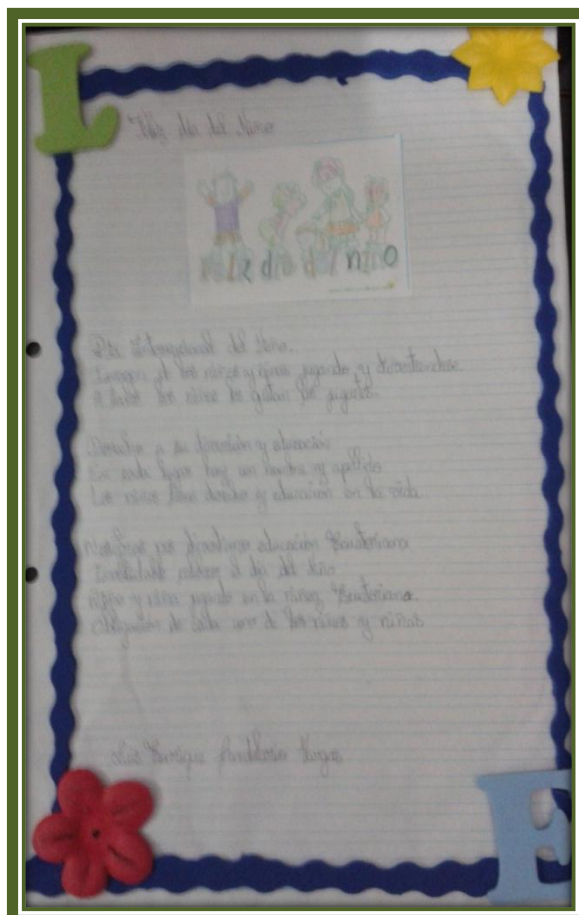 L
Feliz día del Niño
FELIZ día del niño
Día Internacional del Niño.
Imagen de los niños y niñas jugando y divertiendose.
A todos los niños les gustan los juguetes.
Derecho a su dirección y educación
En cada hogar hay un nombre y apellido
Los niños tiene derecho y educación en la vida.
por educación Ecuatoriana
el día del niño
niños y niñas jugando en la niñez Ecuatoriana.
Obligación de cada uno de los niños y niñas
Luis Enrique Vargas
E